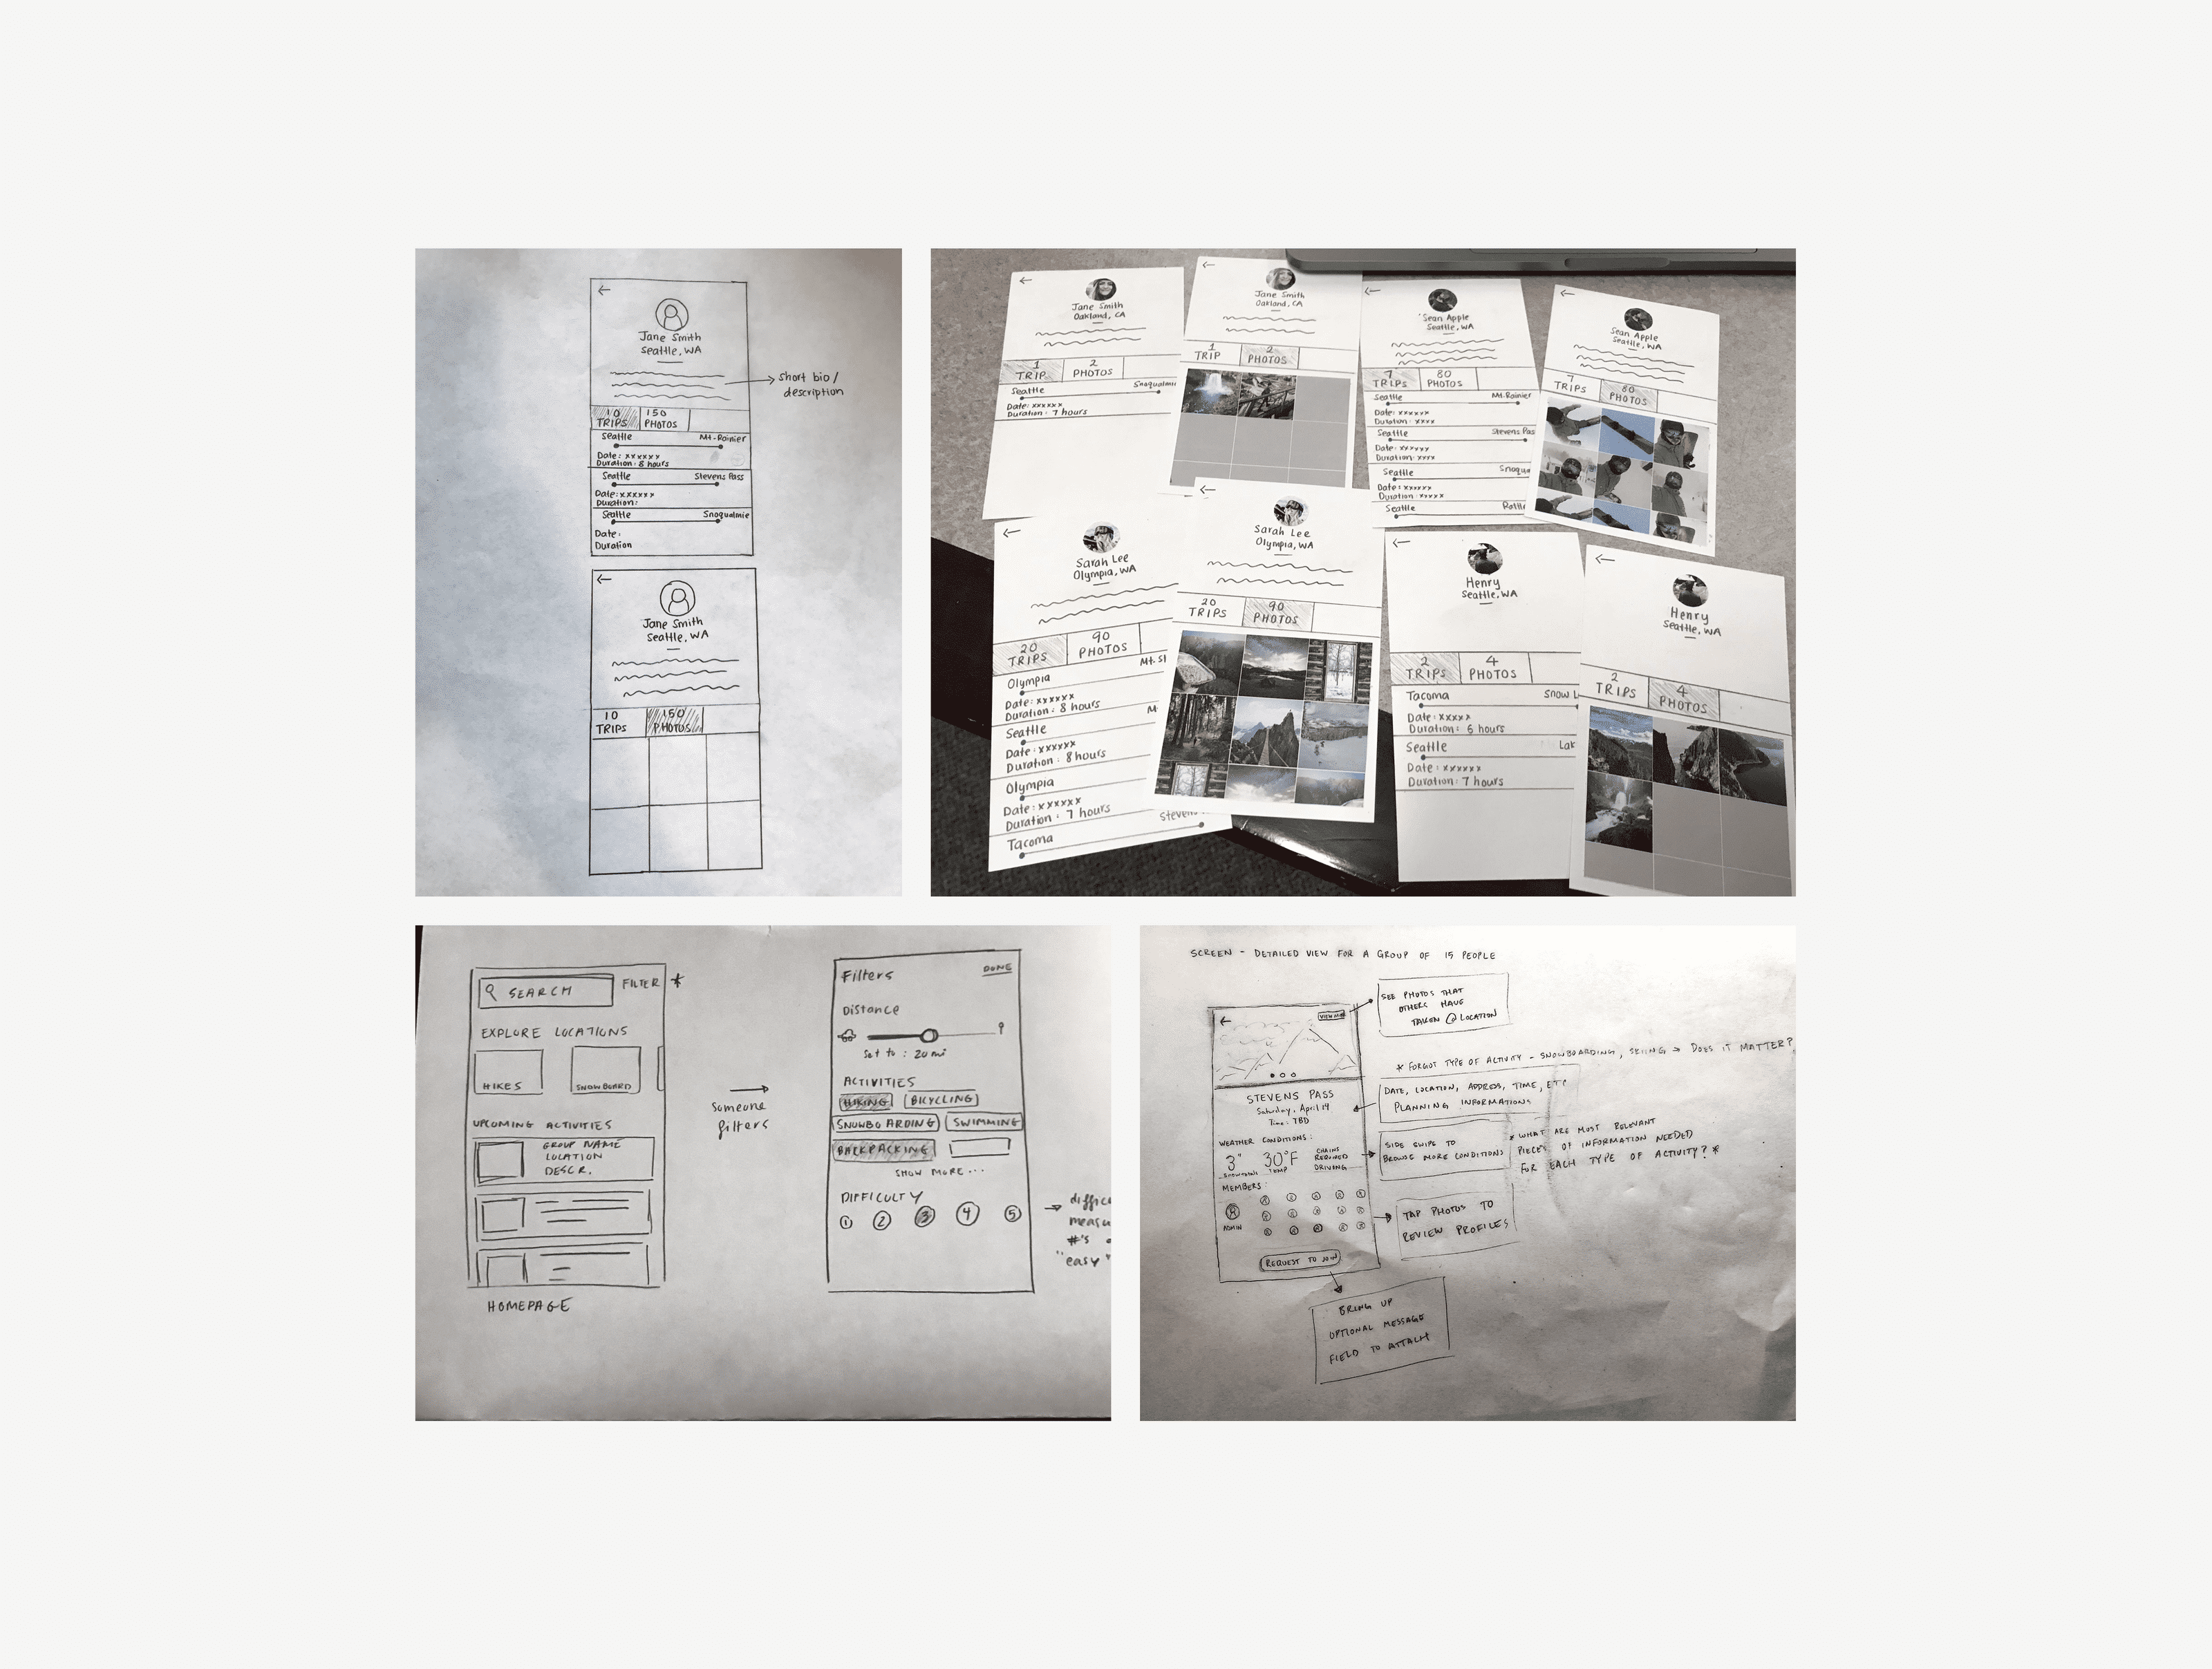 ←
Jane Smith
Seattle, WA
short bio/
description
10 150
TRIPS PHOTOS
Seattle Mt. Rainier
Date: xxxxxx
Duration: 8 hours
Seattle Stevens Pass
Date: xxxxxx
Duration:
Seattle Snoqualmie
Date:
Duration
←
Jane Smith
Seattle, WA
10 150
TRIPS PHOTOS
←
Jane Smith
Oakland, CA
1 2
TRIP PHOTOS
Seattle Snoqualmi
Date: xxxxxx
Duration: 7 hours
←
Jane Smith
Oakland, CA
1 2
TRIP PHOTOS
←
Sean Apple
Seattle, WA
7 80
TRIPS PHOTOS
Seattle Mt. Rainier
Date: xxxxxx
Duration: xxxx
Seattle Stevens Pas
Date: xxxxxx
Duration: xxxx
Seattle Snoqua
Date: xxxxxx
Duration: xxxxx
Seattle
←
Sean Apple
Seattle, WA
7 80
TRIPS PHOTOS
←
Sarah Lee
Olympia, WA
20 90
TRIPS PHOTOS
Olympia Mt. St
Date: xxxxxx
Duration: 8 hours
Seattle M
Date: xxxxxx
Duration: 8 hours
Olympia
Date: xxxxxx
Duration: 7 hours
Tacoma Stevens
←
Sarah Lee
Olympia, WA
20 90
TRIPS PHOTOS
←
Henry
Seattle, WA
2 4
TRIPS PHOTOS
Tacoma Snow L
Date: xxxxx
Duration: 6 hours
Seattle Lak
Date: xxxxx
Duration: 7 hours
←
Henry
Seattle, WA
2 4
TRIPS PHOTOS
SEARCH FILTER *
EXPLORE LOCATIONS
HIKES SNOWBOARD
UPCOMING ACTIVITIES
GROUP NAME
LOCATION
DESCR.
HOMEPAGE
→
Someone
filters
Filters DONE
Distance
Set to: 20 mi
ACTIVITIES
HIKING BICYCLING
SNOWBOARDING SWIMMING
BACKPACKING
SHOW MORE...
DIFFICULTY
1 2 3 4 5
→ diffic
measu
#'s
"easy"
SCREEN - DETAILED VIEW FOR A GROUP OF 15 PEOPLE
←
SEE PHOTOS THAT
OTHERS HAVE
TAKEN @ LOCATION
* FORGOT TYPE OF ACTIVITY - SNOWBOARDING, SKIING → DOES IT MATTER?
STEVENS PASS
Saturday, April 14
Time: TBD
DATE, LOCATION, ADDRESS, TIME, ETC
PLANNING INFORMATION
WEATHER CONDITIONS:
3" 30°F CHAINS
REQUIRED
DRIVING
TEMP
SIDE SWIPE TO
BROWSE MORE CONDITIONS
* WHAT ARE MOST RELEVANT
PIECES OF INFORMATION NEEDED
FOR EACH TYPE OF ACTIVITY? *
MEMBERS:
ADMIN
TAP PHOTOS TO
REVIEW PROFILES
REQUEST TO JOIN
BRING UP
OPTIONAL MESSAGE
FIELD TO ATTACH